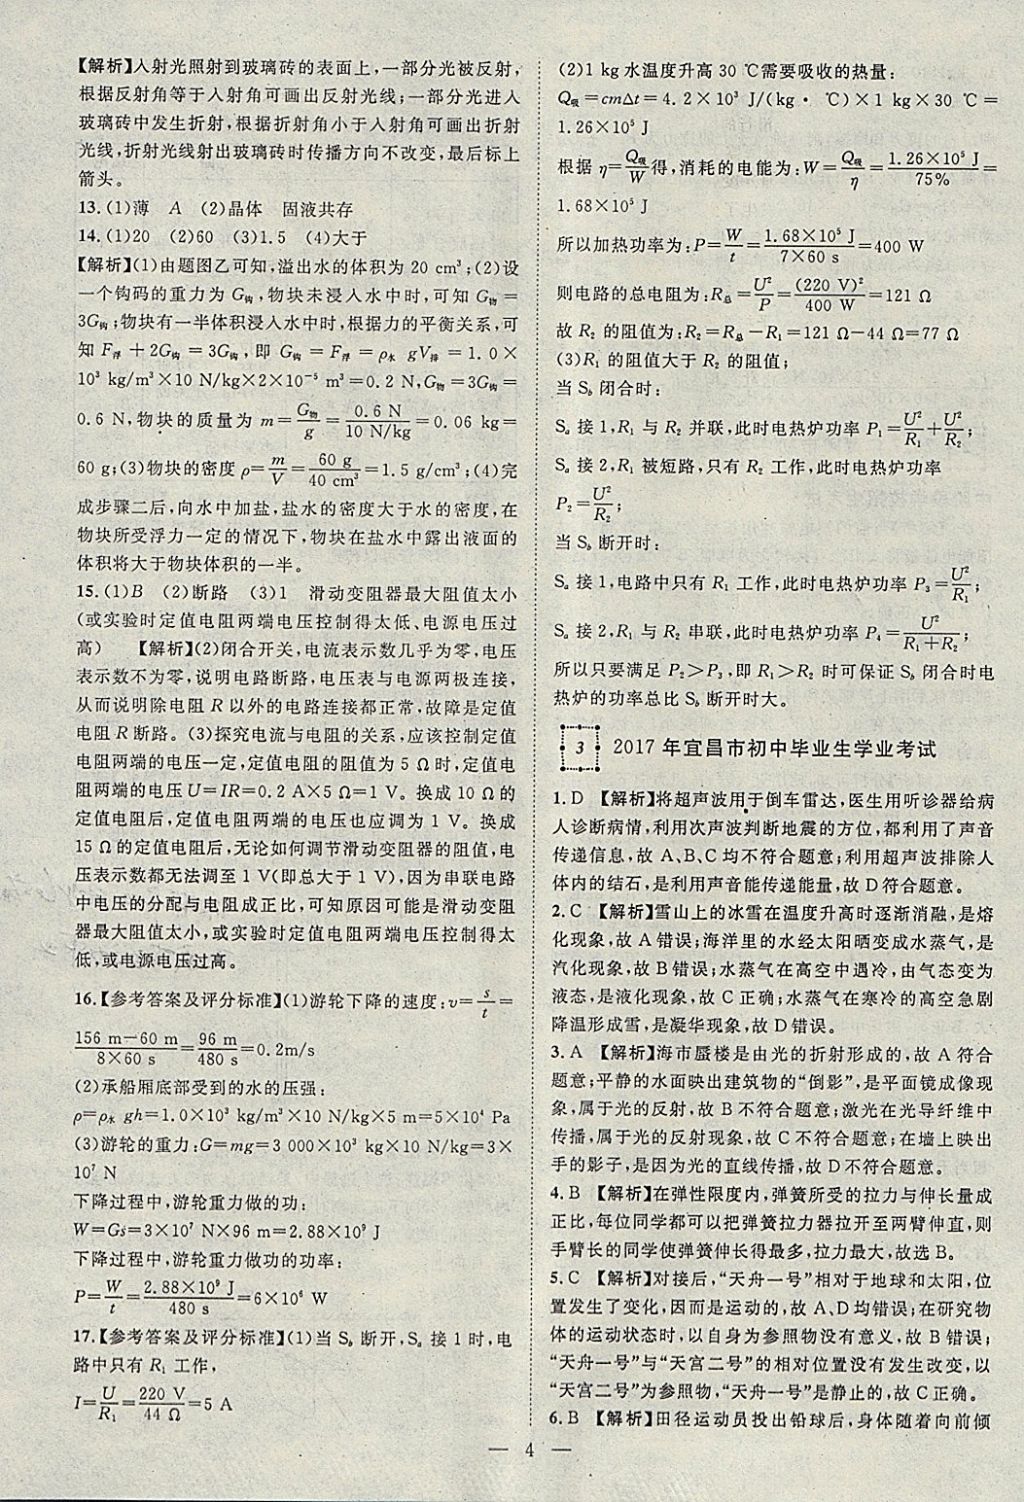 【解析】入射光照射到玻璃砖的表面上,一部分光被反射,
根据反射角等于入射角可画出反射光线;一部分光进入
玻璃砖中发生折射,根据折射角小于入射角可画出折射
光线,折射光线射出玻璃砖时传播方向不改变,最后标上
箭头。
13.(1)薄 A (2)晶体 固液共存
14.(1)20 (2)60 (3)1.5 (4)大于
【解析】(1)由题图乙可知,溢出水的体积为 20 cm³;(2)设
一个钩码的重力为 G钩,物块未浸入水中时,可知 G物=
3G钩;物块有一半体积浸入水中时,根据力的平衡关系,可
知 F浮+2G钩=3G钩,即 G钩=F浮=ρ水 gV排=1.0×
10³ kg/m³×10 N/kg×2×10⁻⁵ m³=0.2 N,G物=3G钩=
0.6 N,物块的质量为 m=G物/g=0.6 N/10 N/kg=0.06 kg=
60 g;(3)物块的密度 ρ=m/V=60 g/40 cm³=1.5 g/cm³;(4)完
成步骤二后,向水中加盐,盐水的密度大于水的密度,在
物块所受浮力一定的情况下,物块在盐水中露出液面的
体积将大于物块体积的一半。
15.(1)B (2)断路 (3)1 滑动变阻器最大阻值太小
(或实验时定值电阻两端电压控制得太低、电源电压过
高) 【解析】(2)闭合开关,电流表示数几乎为零,电压
表示数不为零,说明电路断路,电压表与电源两极连接,
从而说明除电阻 R 以外的电路连接都正常,故障是定值
电阻 R 断路。(3)探究电流与电阻的关系,应该控制定值
电阻两端的电压一定,定值电阻的阻值为 5 Ω时,定值电
阻两端的电压 U=IR=0.2 A×5 Ω=1 V。换成 10 Ω的
定值电阻后,定值电阻两端的电压也应调为 1 V。换成
15 Ω的定值电阻后,无论如何调节滑动变阻器的阻值,电
压表示数都无法调至 1 V(即总大于 1 V),因为串联电路
中电压的分配与电阻成正比,可知原因可能是滑动变阻
器最大阻值太小,或实验时定值电阻两端电压控制得太
低,或电源电压过高。
16.【参考答案及评分标准】(1)游轮下降的速度:v=s/t=
156 m−60 m/8×60 s=96 m/480 s=0.2m/s
(2)承船厢底部受到的水的压强:
ρ=ρ水 gh=1.0×10³ kg/m³×10 N/kg×5 m=5×10⁴ Pa
(3)游轮的重力:G=mg=3 000×10³ kg×10 N/kg=3×
10⁷ N
下降过程中,游轮重力做的功:
W=Gs=3×10⁷ N×96 m=2.88×10⁹ J
下降过程中,游轮重力做功的功率:
P=W/t=2.88×10⁹ J/480 s=6×10⁶ W
17.【参考答案及评分标准】(1)当 Sb 断开,Sa 接 1 时,电
路中只有 R₁ 工作,
I=U/R₁=220 V/44 Ω=5 A
(2)1 kg 水温度升高 30 ℃需要吸收的热量:
Q吸=cmΔt=4.2×10³ J/(kg· ℃)×1 kg×30 ℃=
1.26×10⁵ J
根据 η=Q吸/W得,消耗的电能为:W=Q吸/η=1.26×10⁵ J/75%=
1.68×10⁵ J
所以加热功率为:P=W/t=1.68×10⁵ J/7×60 s=400 W
则电路的总电阻为:R总=U²/P=(220 V)²/400 W=121 Ω
故 R₂ 的阻值为:R₂=R总−R₁=121 Ω−44 Ω=77 Ω
(3)R₁ 的阻值大于 R₂ 的阻值;
当 Sb 闭合时:
Sa 接 1,R₁ 与 R₂ 并联,此时电热炉功率 P₁=U²/R₁+U²/R₂;
Sa 接 2,R₁ 被短路,只有 R₂ 工作,此时电热炉功率
P₂=U²/R₂;
当 Sb 断开时:
Sa 接 1,电路中只有 R₁ 工作,此时电热炉功率 P₃=U²/R₁;
Sa 接 2,R₁ 与 R₂ 串联,此时电热炉功率 P₄=U²/R₁+R₂;
所以只要满足 P₂>P₃,即 R₁>R₂ 时可保证 Sb 闭合时电
热炉的功率总比 Sb 断开时大。
3 2017 年宜昌市初中毕业生学业考试
1.D 【解析】将超声波用于倒车雷达,医生用听诊器给病
人诊断病情,利用次声波判断地震的方位,都利用了声音
传递信息,故 A、B、C 均不符合题意;利用超声波排除人
体内的结石,是利用声音能传递能量,故 D 符合题意。
2.C 【解析】雪山上的冰雪在温度升高时逐渐消融,是熔
化现象,故 A 错误;海洋里的水经太阳晒变成水蒸气,是
汽化现象,故 B 错误;水蒸气在高空中遇冷,由气态变为
液态,是液化现象,故 C 正确;水蒸气在寒冷的高空急剧
降温形成雪,是凝华现象,故 D 错误。
3.A 【解析】海市蜃楼是由光的折射形成的,故 A 符合
题意;平静的水面映出建筑物的“倒影”,是平面镜成像现
象,属于光的反射,故 B 不符合题意;激光在光导纤维中
传播,属于光的反射现象,故 C 不符合题意;在墙上映出
手的影子,是因为光的直线传播,故 D 不符合题意。
4.B 【解析】在弹性限度内,弹簧所受的拉力与伸长量成
正比,每位同学都可以把弹簧拉力器拉开至两臂伸直,则
手臂长的同学使弹簧伸长得最多,拉力最大,故选 B。
5.C 【解析】对接后,“天舟一号”相对于地球和太阳,位
置发生了变化,因而是运动的,故 A、D 均错误;在研究物
体的运动状态时,以自身为参照物没有意义,故 B 错误;
“天舟一号”与“天宫二号”的相对位置没有发生改变,以
“天宫二号”为参照物,“天舟一号”是静止的,故 C 正确。
6.B 【解析】田径运动员投出铅球后,身体随着向前倾
— 4 —